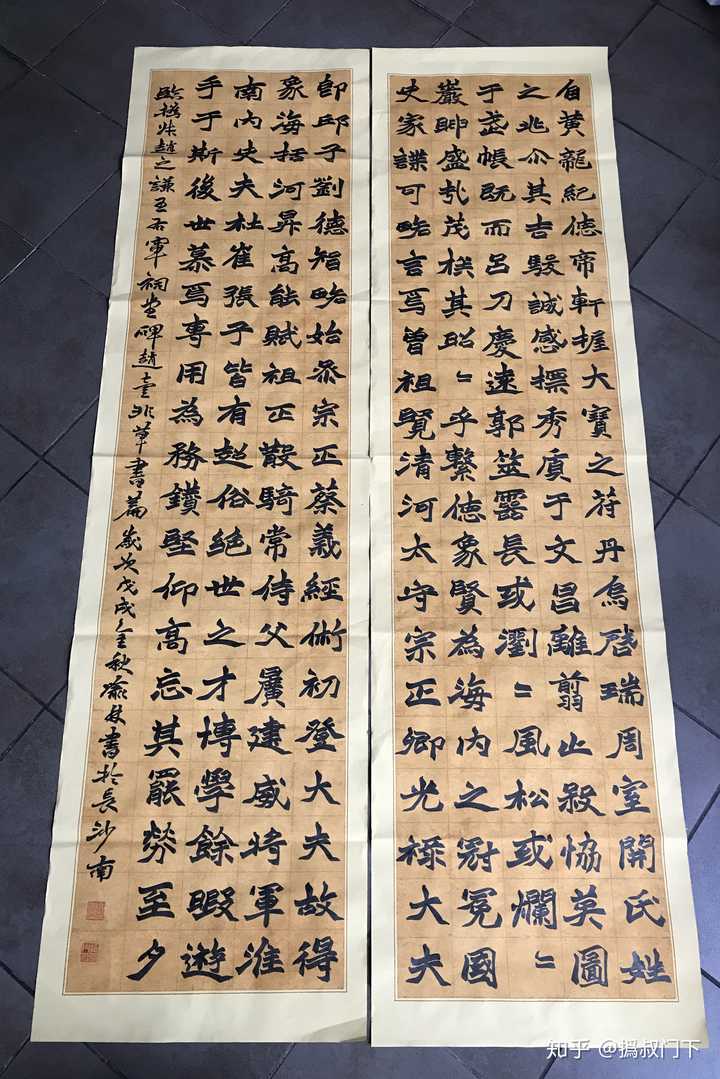 自黃龍紀德帝軒握大寶之苻丹烏啓瑞周室開氏姓
之兆介其吉駮誠感摽秀質于文昌離翦止殺恊莫圖
于帳既而呂刀慶遠郭筮露長或瀏=風松或爛=
巖耶盛茂其昭=乎繫德象賢為海內之冠冕國
史家諜可略言焉曾祖覽清河太守宗正卿光祿大夫
即邱子劉德智略始叅宗正蔡義經術初登大夫故得
象海括河昇高能賦祖正散騎常侍父廙建威將軍淮
南內史夫杜崔張子皆有超俗絕世之才博學餘暇遊
手于斯後世慕焉專用為務鑽堅仰高忘其罷勞至夕
臨撝叔趙之謙王右軍祠堂碑趙壹非草書篇歲次戊戌金秋書於長沙南
知乎 @撝叔门下